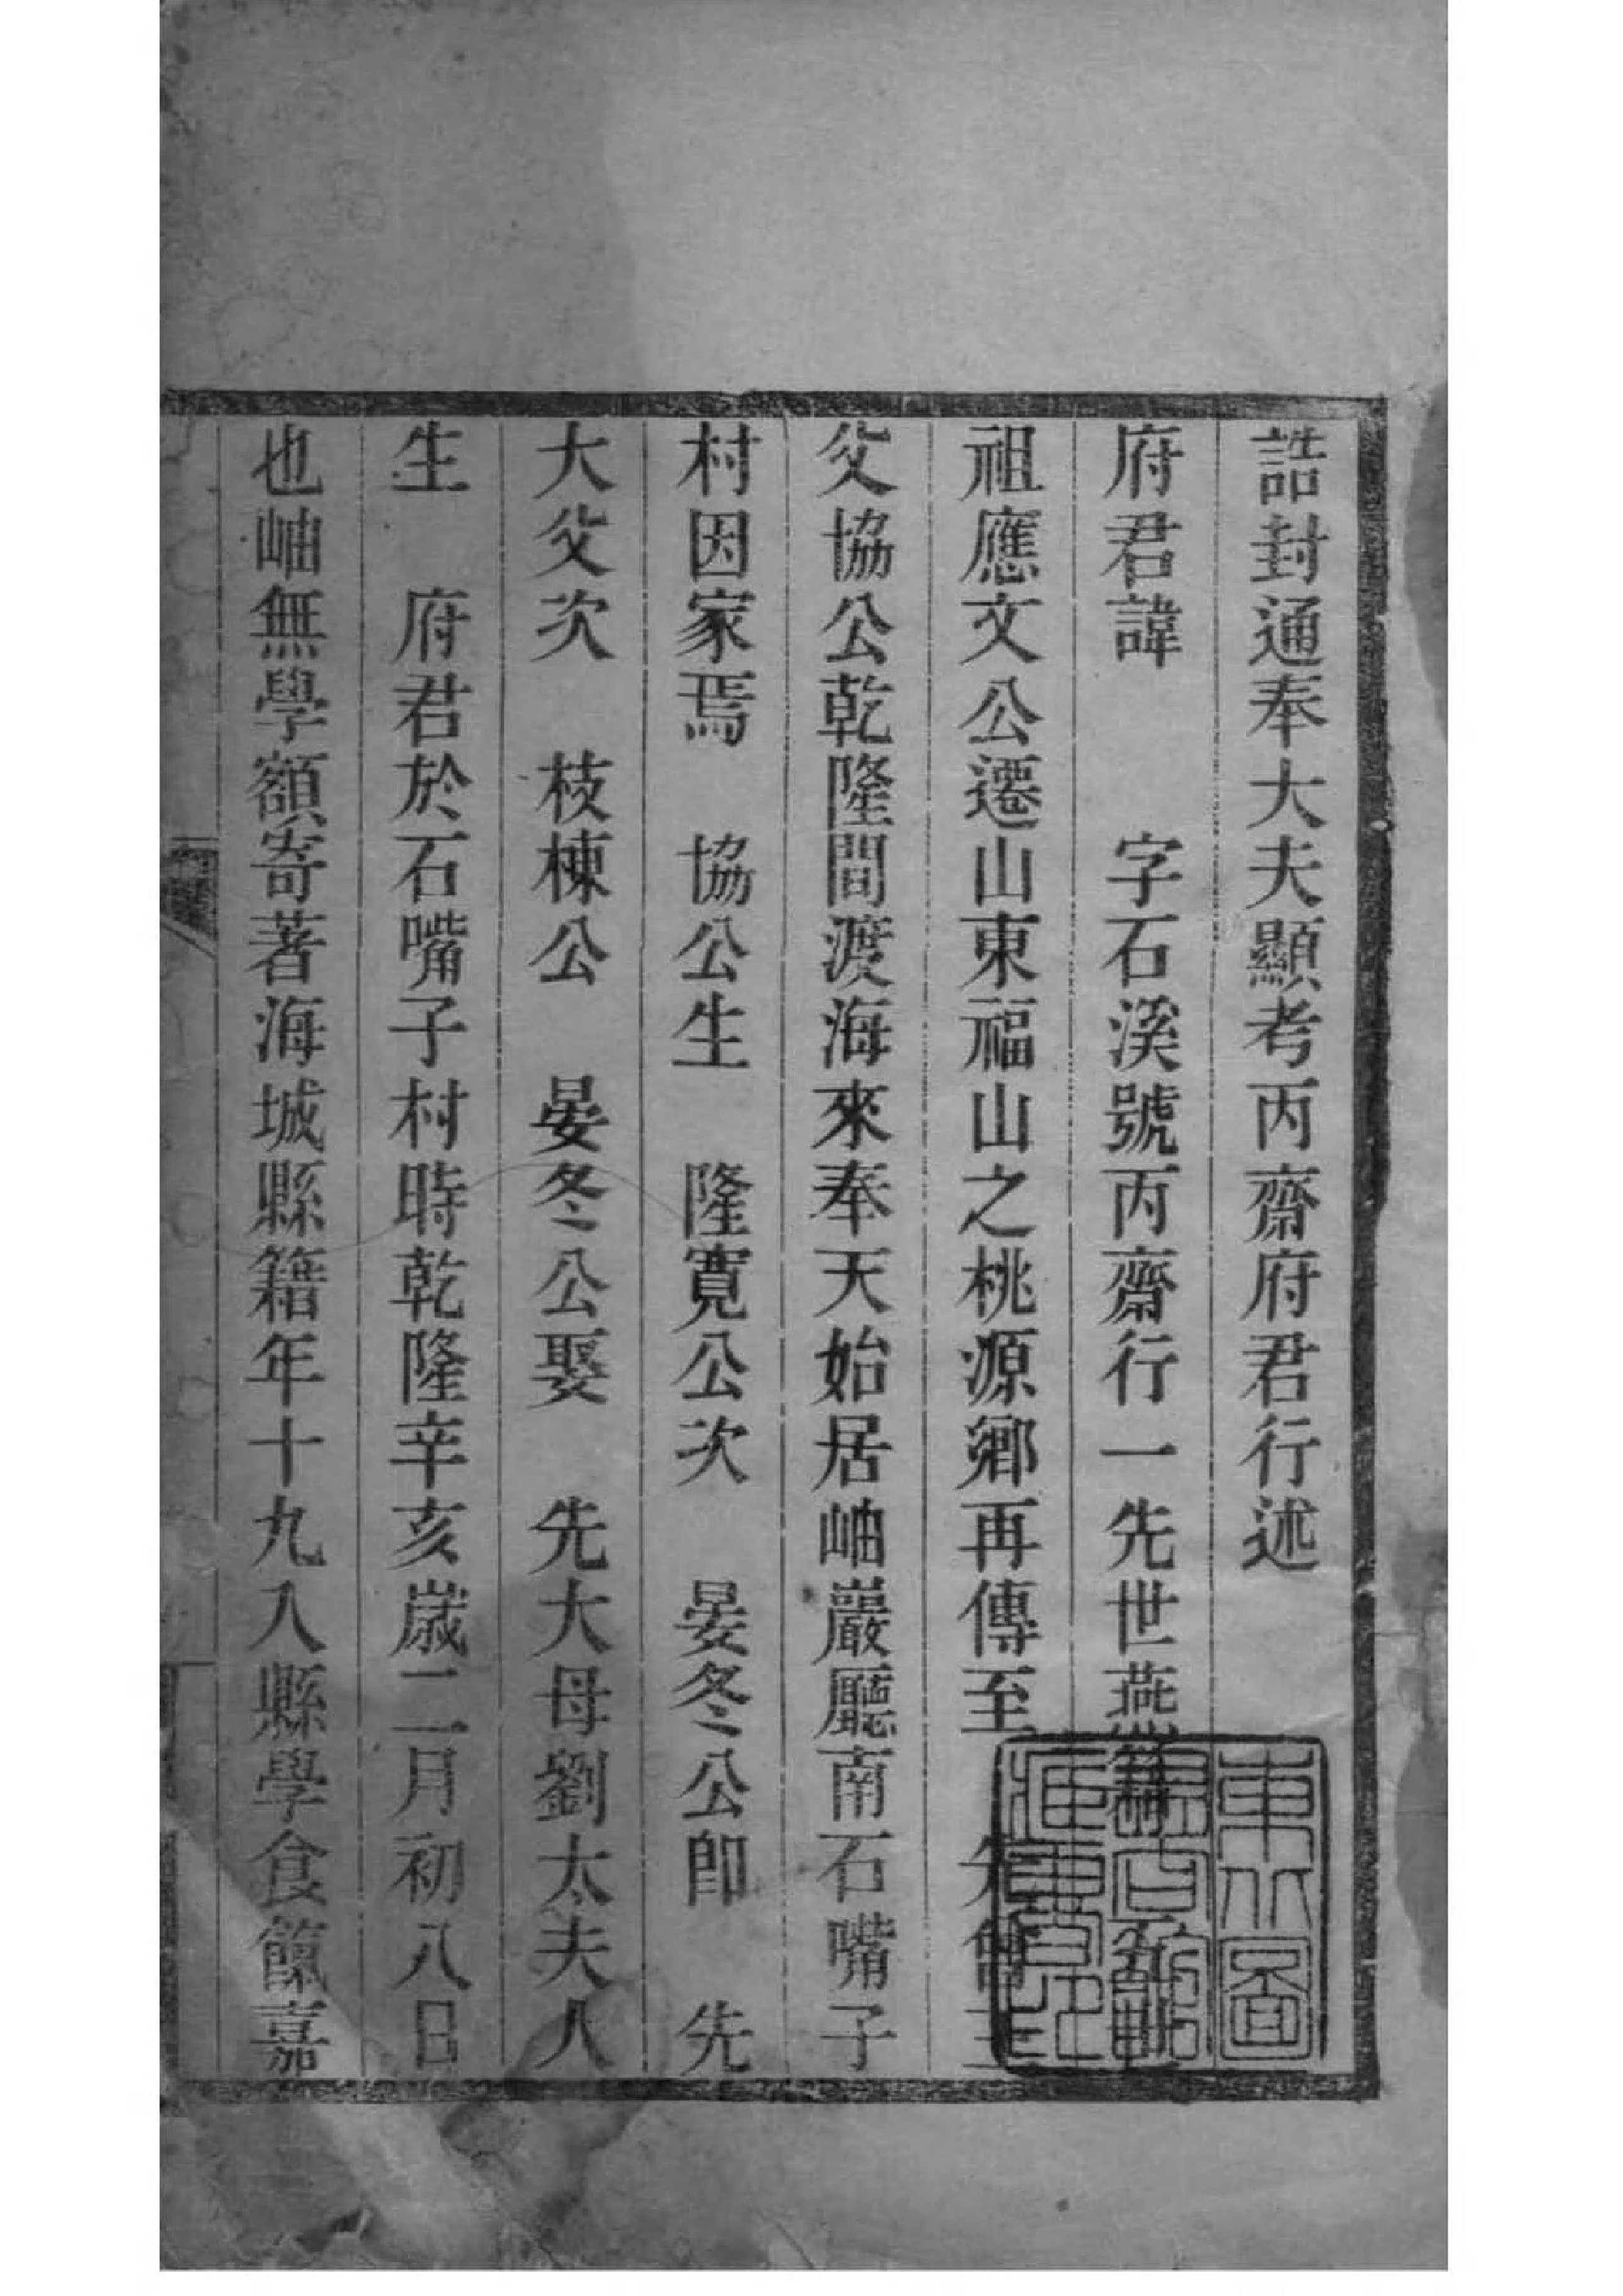 誥封通奉大夫顯考丙齋府君行述
府君諱　　字石溪號丙齋行一先世燕籍
祖應文公遷山東福山之桃源鄉再傳至　先曾王
父協公乾隆間渡海來奉天始居岫巖廳南石嘴子
村因家焉　協公生　隆寬公次　晏冬公卽　先
大父次　枝棟公　晏冬公娶　先大母劉太夫人
生　府君於石嘴子村時乾隆辛亥歲二月初八日
也岫無學額寄著海城縣籍年十九入縣學食餼嘉
東北圖